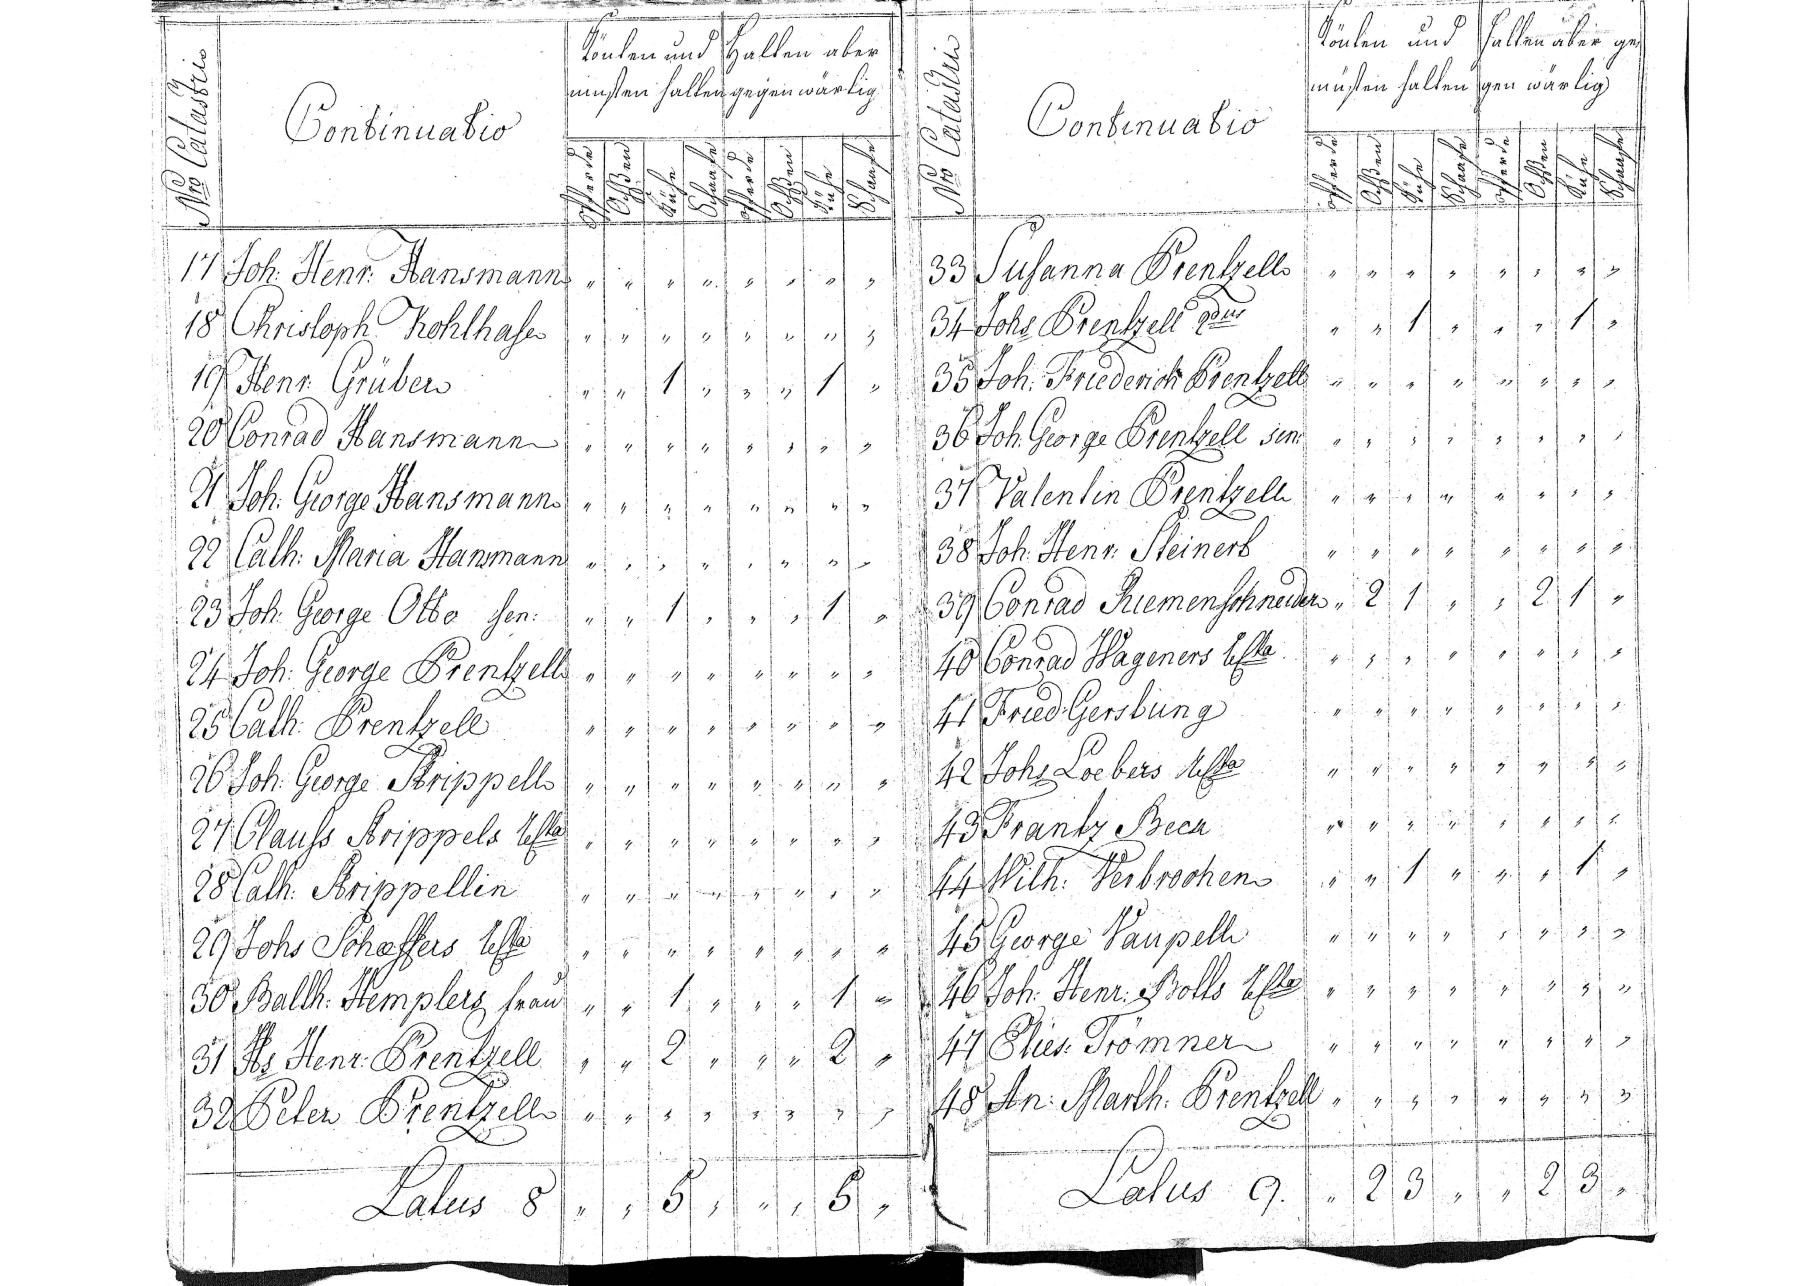 Nro Catastri
Continuatio
Könten und
müsten halten
Halten aber
gegenwärtig
Pferde
Ochßen
Kühe
Schaafe
Pferde
Ochßen
Kühe
Schaafe
17 Joh: Henr: Hansmann " " " " " " " "
18 Christoph Kohlhase " " " " " " " "
19 Henr: Grüber " " 1 " " " 1 "
20 Conrad Hansmann " " " " " " " "
21 Joh: George Hansmann " " " " " " " "
22 Cath: Maria Hansmann " " " " " " " "
23 Joh: George Otto sen: " " 1 " " " 1 "
24 Joh: George Prentzell " " " " " " " "
25 Cath: Prentzell " " " " " " " "
26 Joh: George Krippell " " " " " " " "
27 Clauss Krippels " " " " " " " "
28 Cath: Krippellin " " " " " " " "
29 Johs Schæffers " " " " " " " "
30 Balth: Hemplers frau " " 1 " " " 1 "
31 Hs Henr: Prentzell " " 2 " " " 2 "
32 Peter Prentzell " " " " " " " "
Latus 8 " " 5 " " " 5 "
Nro Catastri
Continuatio
Könten und
müsten halten
Halten aber ge
gen wärtig
Pferde
Ochßen
Kühe
Schaafe
Pferde
Ochßen
Kühe
Schaafe
33 Susanna Prentzell " " " " " " " "
34 Johs Prentzell 2dus " " 1 " " " 1 "
35 Joh: Friederich Prentzell " " " " " " " "
36 Joh: George Prentzell sen: " " " " " " " "
37 Valentin Prentzell " " " " " " " "
38 Joh: Henr: Steinert " " " " " " " "
39 Conrad Riemenschneider " 2 1 " " 2 1 "
40 Conrad Wageners " " " " " " " "
41 Fried: Gerstung " " " " " " " "
42 Johs Loebers " " " " " " " "
43 Frantz Beck " " " " " " " "
44 Wilh: Verbrochen " " 1 " " " 1 "
45 George Vaupell " " " " " " " "
46 Joh: Henr: Bolls " " " " " " " "
47 Elies: Trömner " " " " " " " "
48 An: Marth: Prentzell " " " " " " " "
Latus 9. " 2 3 " " 2 3 "